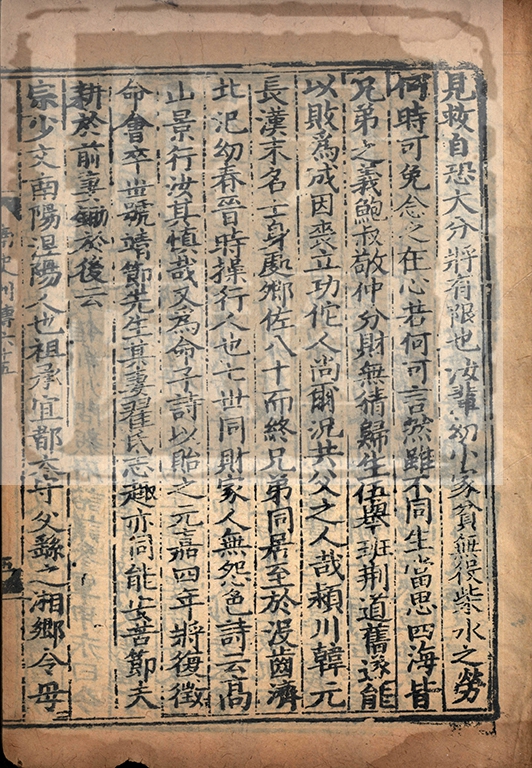 見救自恐大分將有限也汝輩幼小家貧無役柴水之勞
何時可免念之在心若何可言然雖不同生當思四海皆
兄弟之義鮑叔敬仲分財無猜歸生伍舉班荆道舊遂能
以敗為成因喪立功佗人尚爾況共父之人哉潁川韓元
長漢末名士身處卿佐八十而終兄弟同居至於没齒濟
北氾幼春晉時操行人也七世同財家人無怨色詩云高
山景行汝其慎哉又為命子詩以貽之元嘉四年將復徵
命會卒世號靖節先生其妻翟氏志趣亦同能安苦節夫
耕於前妻鋤於後云
宗少文南陽涅陽人也祖承宜都太守父繇之湘鄉令母
南史列傳六十五